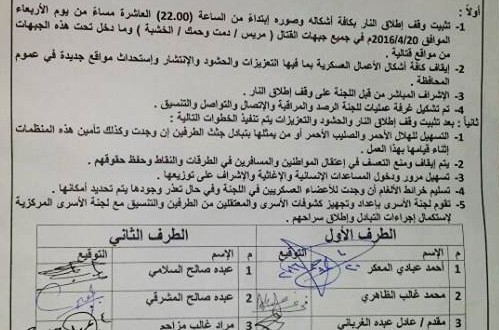 أولاً :
1- تثبيت وقف إطلاق النار بكافة أشكاله وصوره إبتداءً من الساعة (22.00) العاشرة مساءً من يوم الأربعاء
الموافق 2016/4/20م في جميع جبهات القتال ( مريس / دمت وحمك / الخشبة ) وما دخل تحت هذه الجبهات
من مواقع قتالية .
2- إيقاف كافة أشكال الأعمال العسكرية بما فيها التعزيزات والحشود والإنتشار وإستحداث مواقع جديدة في عموم
المحافظة .
3- الإشراف المباشر من قبل اللجنة على وقف إطلاق النار .
4- تم تشكيل غرفة عمليات للجنة الرصد والمراقبة والإتصال والتواصل والتنسيق .
ثانياً : بعد تثبيت وقف إطلاق النار والحشود والتعزيزات يتم تنفيذ الخطوات التالية :
1- التسهيل للهلال الأحمر والصليب الأحمر أو من يمثلها بتبادل جثث الطرفين إن وجدت وكذلك تأمين هذه المنظمات
إثناء قيامها بهذا العمل .
2- يتم إيقاف ومنع التعسف في إعتقال المواطنين والمسافرين في الطرقات والنقاط وحفظ حقوقهم .
3- تسهيل مرور ودخول المساعدات الإنسانية والإغاثية والإشراف على توزيعها .
4- تسليم خرائط الألغام أن وجدت للأعضاء العسكريين في اللجنة وفي حال تعذر وجودها يتم تحديد أمكانها .
5- تقوم لجنة الأسرى بإعداد وتجهيز كشوفات الأسرى والمعتقلين من الطرفين والتنسيق مع لجنة الأسرى المركزية
لإستكمال إجراءات التبادل وإطلاق سراحهم .
الطرف الأول الطرف الثاني
م الإسم التوقيع م الإسم التوقيع
1 أحمد عبادي المعكر 1 عبده صالح السلامي
2 محمد غالب الظاهري 2 عبده صالح المشرقي
3 مقدم / عادل عبده الغرباني 3 مراد غالب مزاحم